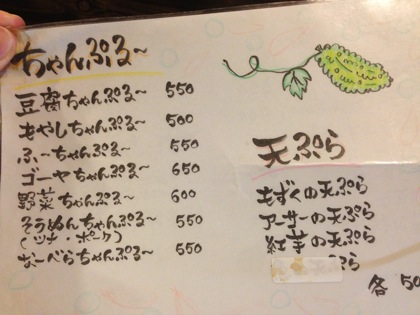 ちゃんぷる～
豆腐ちゃんぷる～ 550
もやしちゃんぷる～ 500
ふ～ちゃんぷる～ 550
ゴーヤちゃんぷる～ 650
野菜ちゃんぷる～ 600
そうめんちゃんぷる～ 550
(ツナ・ポーク)
なーべらちゃんぷる～ 550
天ぷら
もずくの天ぷら
アーサーの天ぷら
紅芋の天ぷら
ぷら
各 50